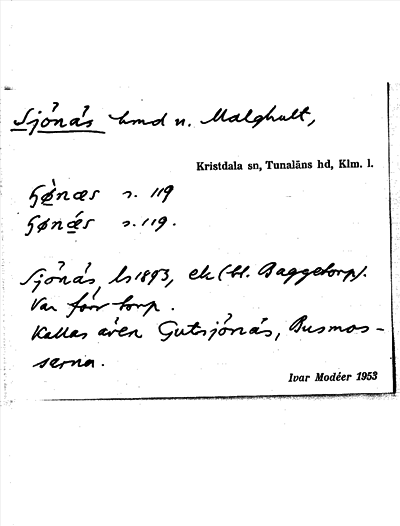 Sjönäs hmd u. Malghult,
Kristdala sn, Tunaläns hd, Klm. l.
s. 119
s. 119.
Sjönäs, ls 1893, ek (bl. Baggetorp).
Var förr torp.
Kallas även Gutsjönäs, Busmos-
serna.
Ivar Modéer 1953